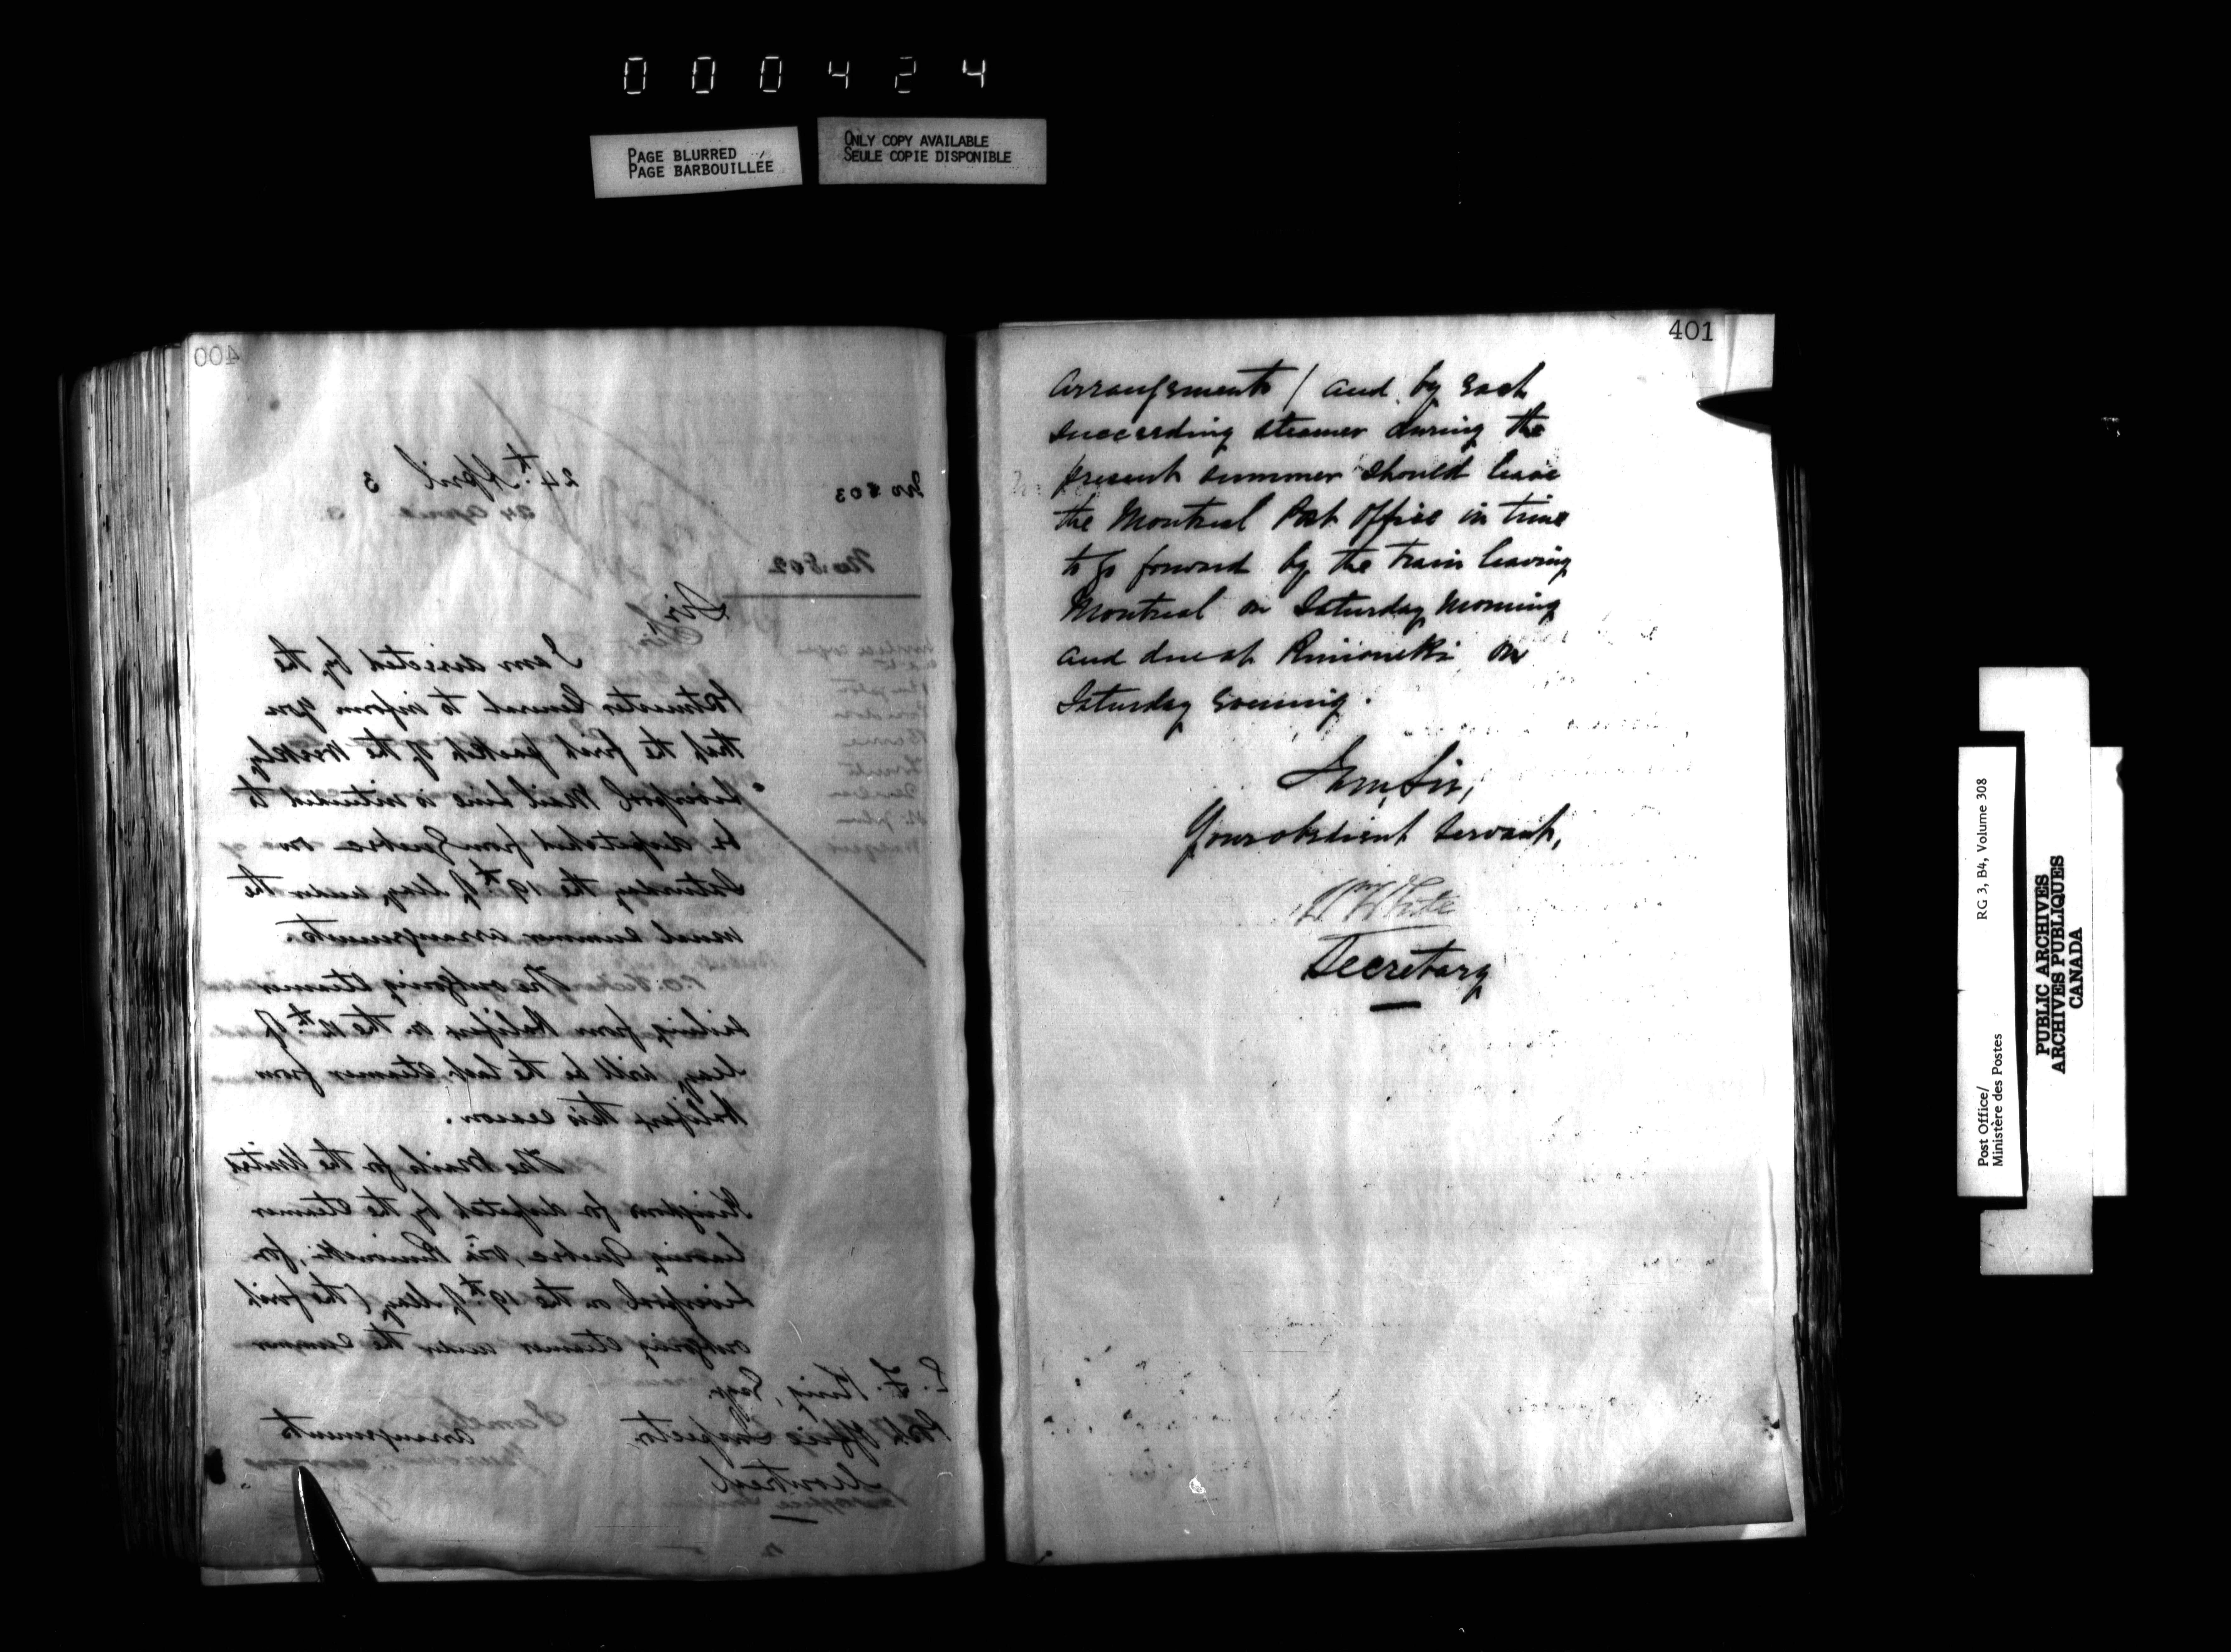 000424
PAGE BLURRED
PAGE BARBOUILLÉE
ONLY COPY AVAILABLE
SEULE COPIE DISPONIBLE
400
No 803
24th April 3
24 April 3
No 802
Sir,
I am directed by the
Postmaster General to inform you
that the first packet of the Weekly
Liverpool Mail Line is intended to
be despatched from Quebec on
Saturday the 19th of May, under the
usual summer arrangements.
The outgoing steamer
sailing from Halifax on the 12th of
May, will be the last steamer from
Halifax this season.
The Mails for the United
Kingdom for despatch by the steamer
leaving Quebec, via Rimouski, for
Liverpool on the 19th of May, (the first
outgoing steamer under the summer
E. F. King, Esqr.
Post Office Inspector
Montreal
arrangements
401
arrangements) and by each
succeeding steamer during the
present summer should leave
the Montreal Post Office in time
to go forward by the train leaving
Montreal on Saturday morning
and due at Rimouski on
Saturday evening.
I am, Sir,
Your obedient Servant,
Wm White
Secretary
Post Office/
Ministère des Postes
RG 3, B4, Volume 308
PUBLIC ARCHIVES
ARCHIVES PUBLIQUES
CANADA